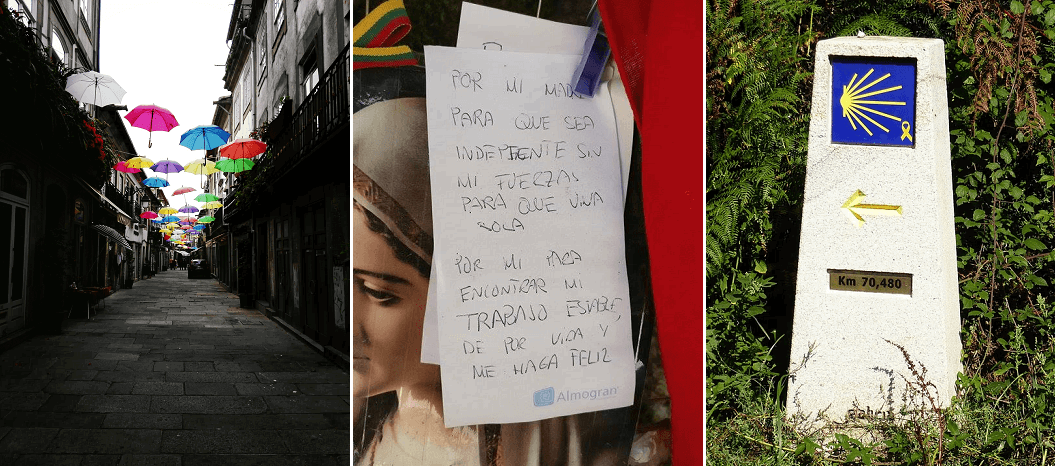 POR MI MADRE
PARA QUE SEA
SIN
MI FUERZAS
PARA QUE VIVA
SOLA
POR MI PARA
ENCONTRAR MI
TRABAJO ESTABLE,
DE POR VIDA Y
ME HAGA FELIZ
Almogran
Km 70,480